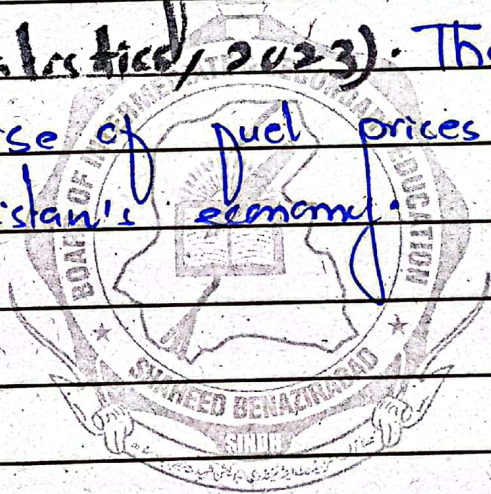 2023). Th
se of fuel prices
istan's economy.
BOARD OF INTERMEDIATE & SECONDARY EDUCATION
SHAHEED BENAZIRABAD
SINDH